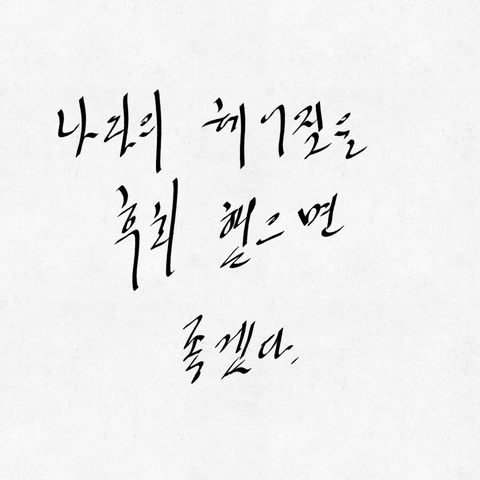 나와의 헤어짐을
후회 했으면
좋겠다.